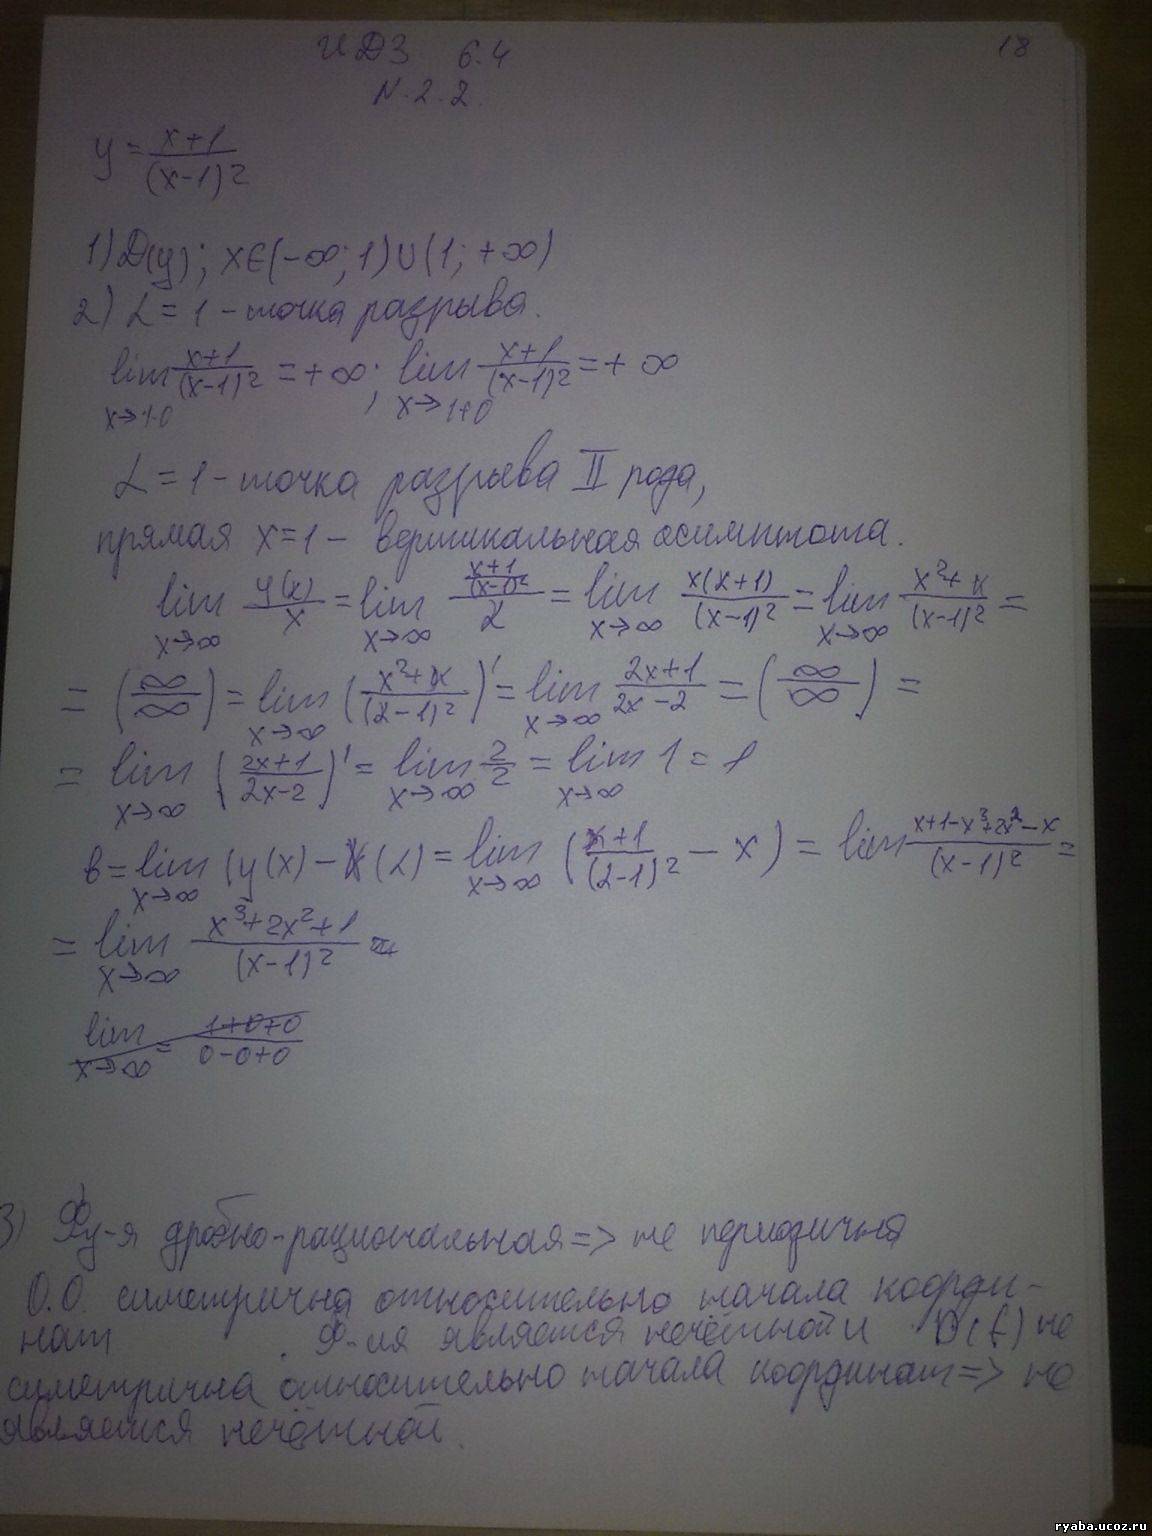 ИДЗ 6.4 18
N. 2.2.
y = \frac{x+1}{(x-1)^2}
1) D(y); x∈(-∞; 1)∪(1; +∞)
2) L = 1 - точка разрыва.
lim_{x→1-0} \frac{x+1}{(x-1)^2} = +∞; lim_{x→1+0} \frac{x+1}{(x-1)^2} = +∞
L = 1 - точка разрыва II рода,
прямая x=1 - вертикальная асимптота.
lim_{x→∞} \frac{y(x)}{x} = lim_{x→∞} \frac{\frac{x+1}{(x-1)^2}}{x} = lim_{x→∞} \frac{x(x+1)}{(x-1)^2} = lim_{x→∞} \frac{x^2+x}{(x-1)^2} =
= (\frac{∞}{∞}) = lim_{x→∞} (\frac{x^2+x}{(x-1)^2})' = lim_{x→∞} \frac{2x+1}{2x-2} = (\frac{∞}{∞}) =
= lim_{x→∞} (\frac{2x+1}{2x-2})' = lim_{x→∞} \frac{2}{2} = lim_{x→∞} 1 = 1
в = lim_{x→∞} (y(x) - k(x) = lim_{x→∞} (\frac{x+1}{(x-1)^2} - x) = lim \frac{x+1-x^3+2x^2-x}{(x-1)^2} =
= lim_{x→∞} \frac{x^3+2x^2+1}{(x-1)^2} =
lim_{x→∞} = \frac{1+0+0}{0-0+0}
3) Фу-я дробно-рациональная => не периодична
О.О. симетрична относительно начала коорди-
нат. Ф-ия является нечётной и D(f) не
симетрична относительно начала координат => не
является нечётной.
ryaba.ucoz.ru